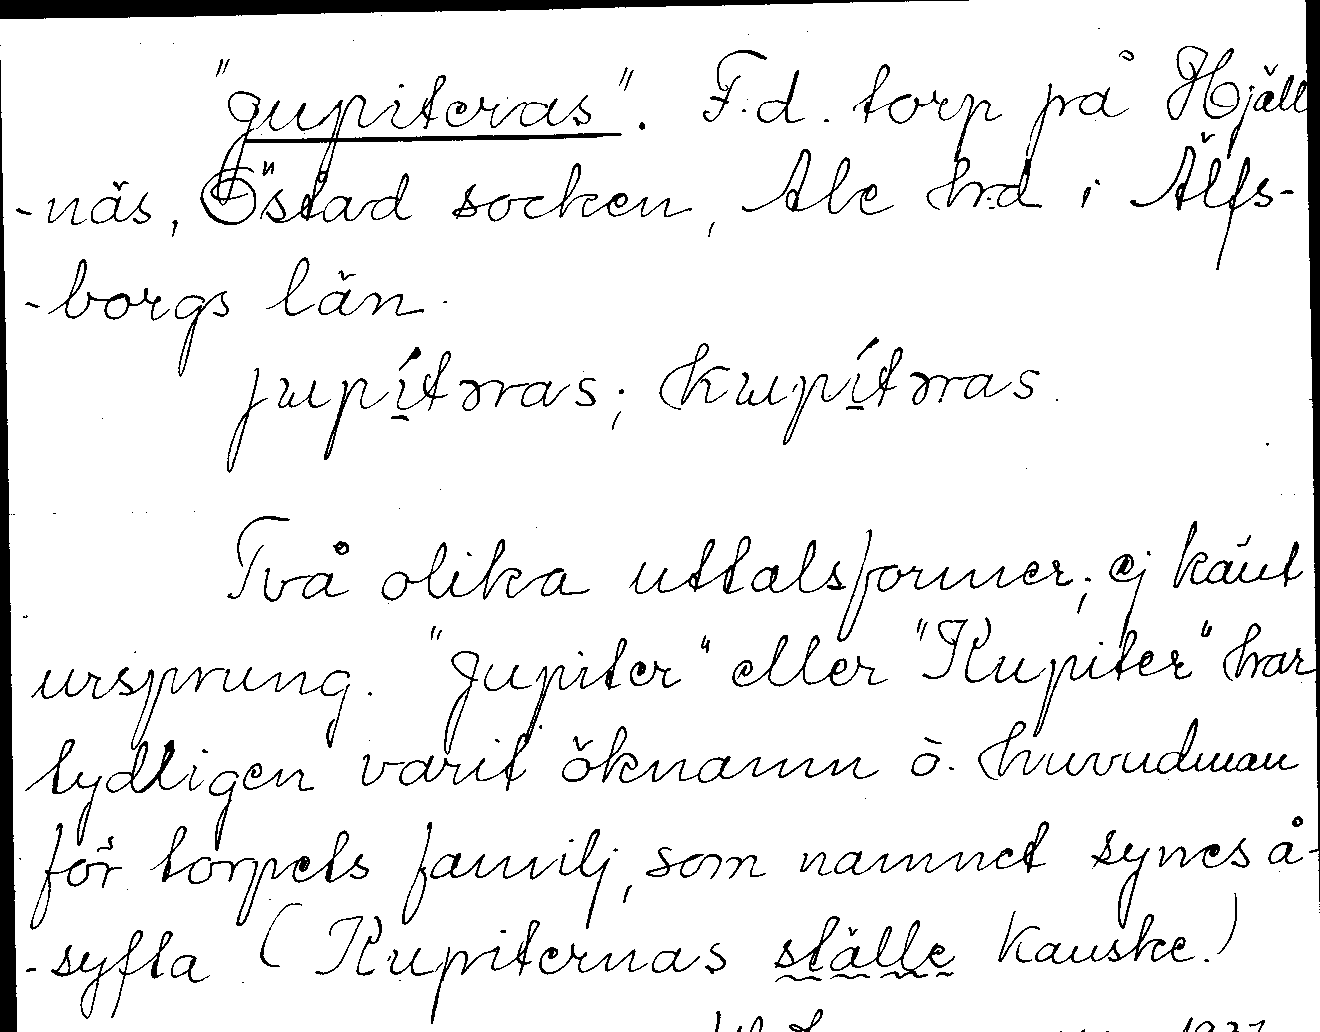 "Jupiteras". F.d. torp på Hjäll
-näs, Östad socken, Ale hrd i Älfs-
-borgs län.
jupítəras; kupítəras.
Två olika uttalsformer; ej känt
ursprung. "Jupiter" eller "Kupiter" har
tydligen varit öknamn å huvudman
för torpets familj, som namnet synes å-
-syfta (Kupiternas ställe kanske.)
1931